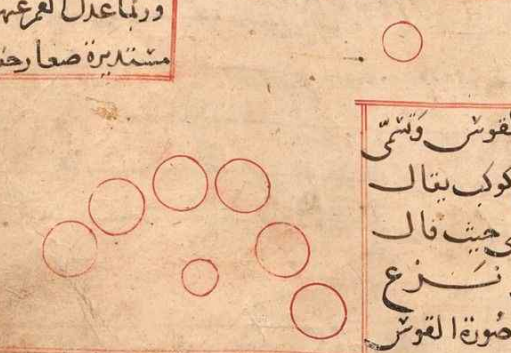 وربما عدل القمر عنها
مستديرة صغار خفية
القوس وتسمى
كوكب يقال
حيث قال
نزع
صورة القوس